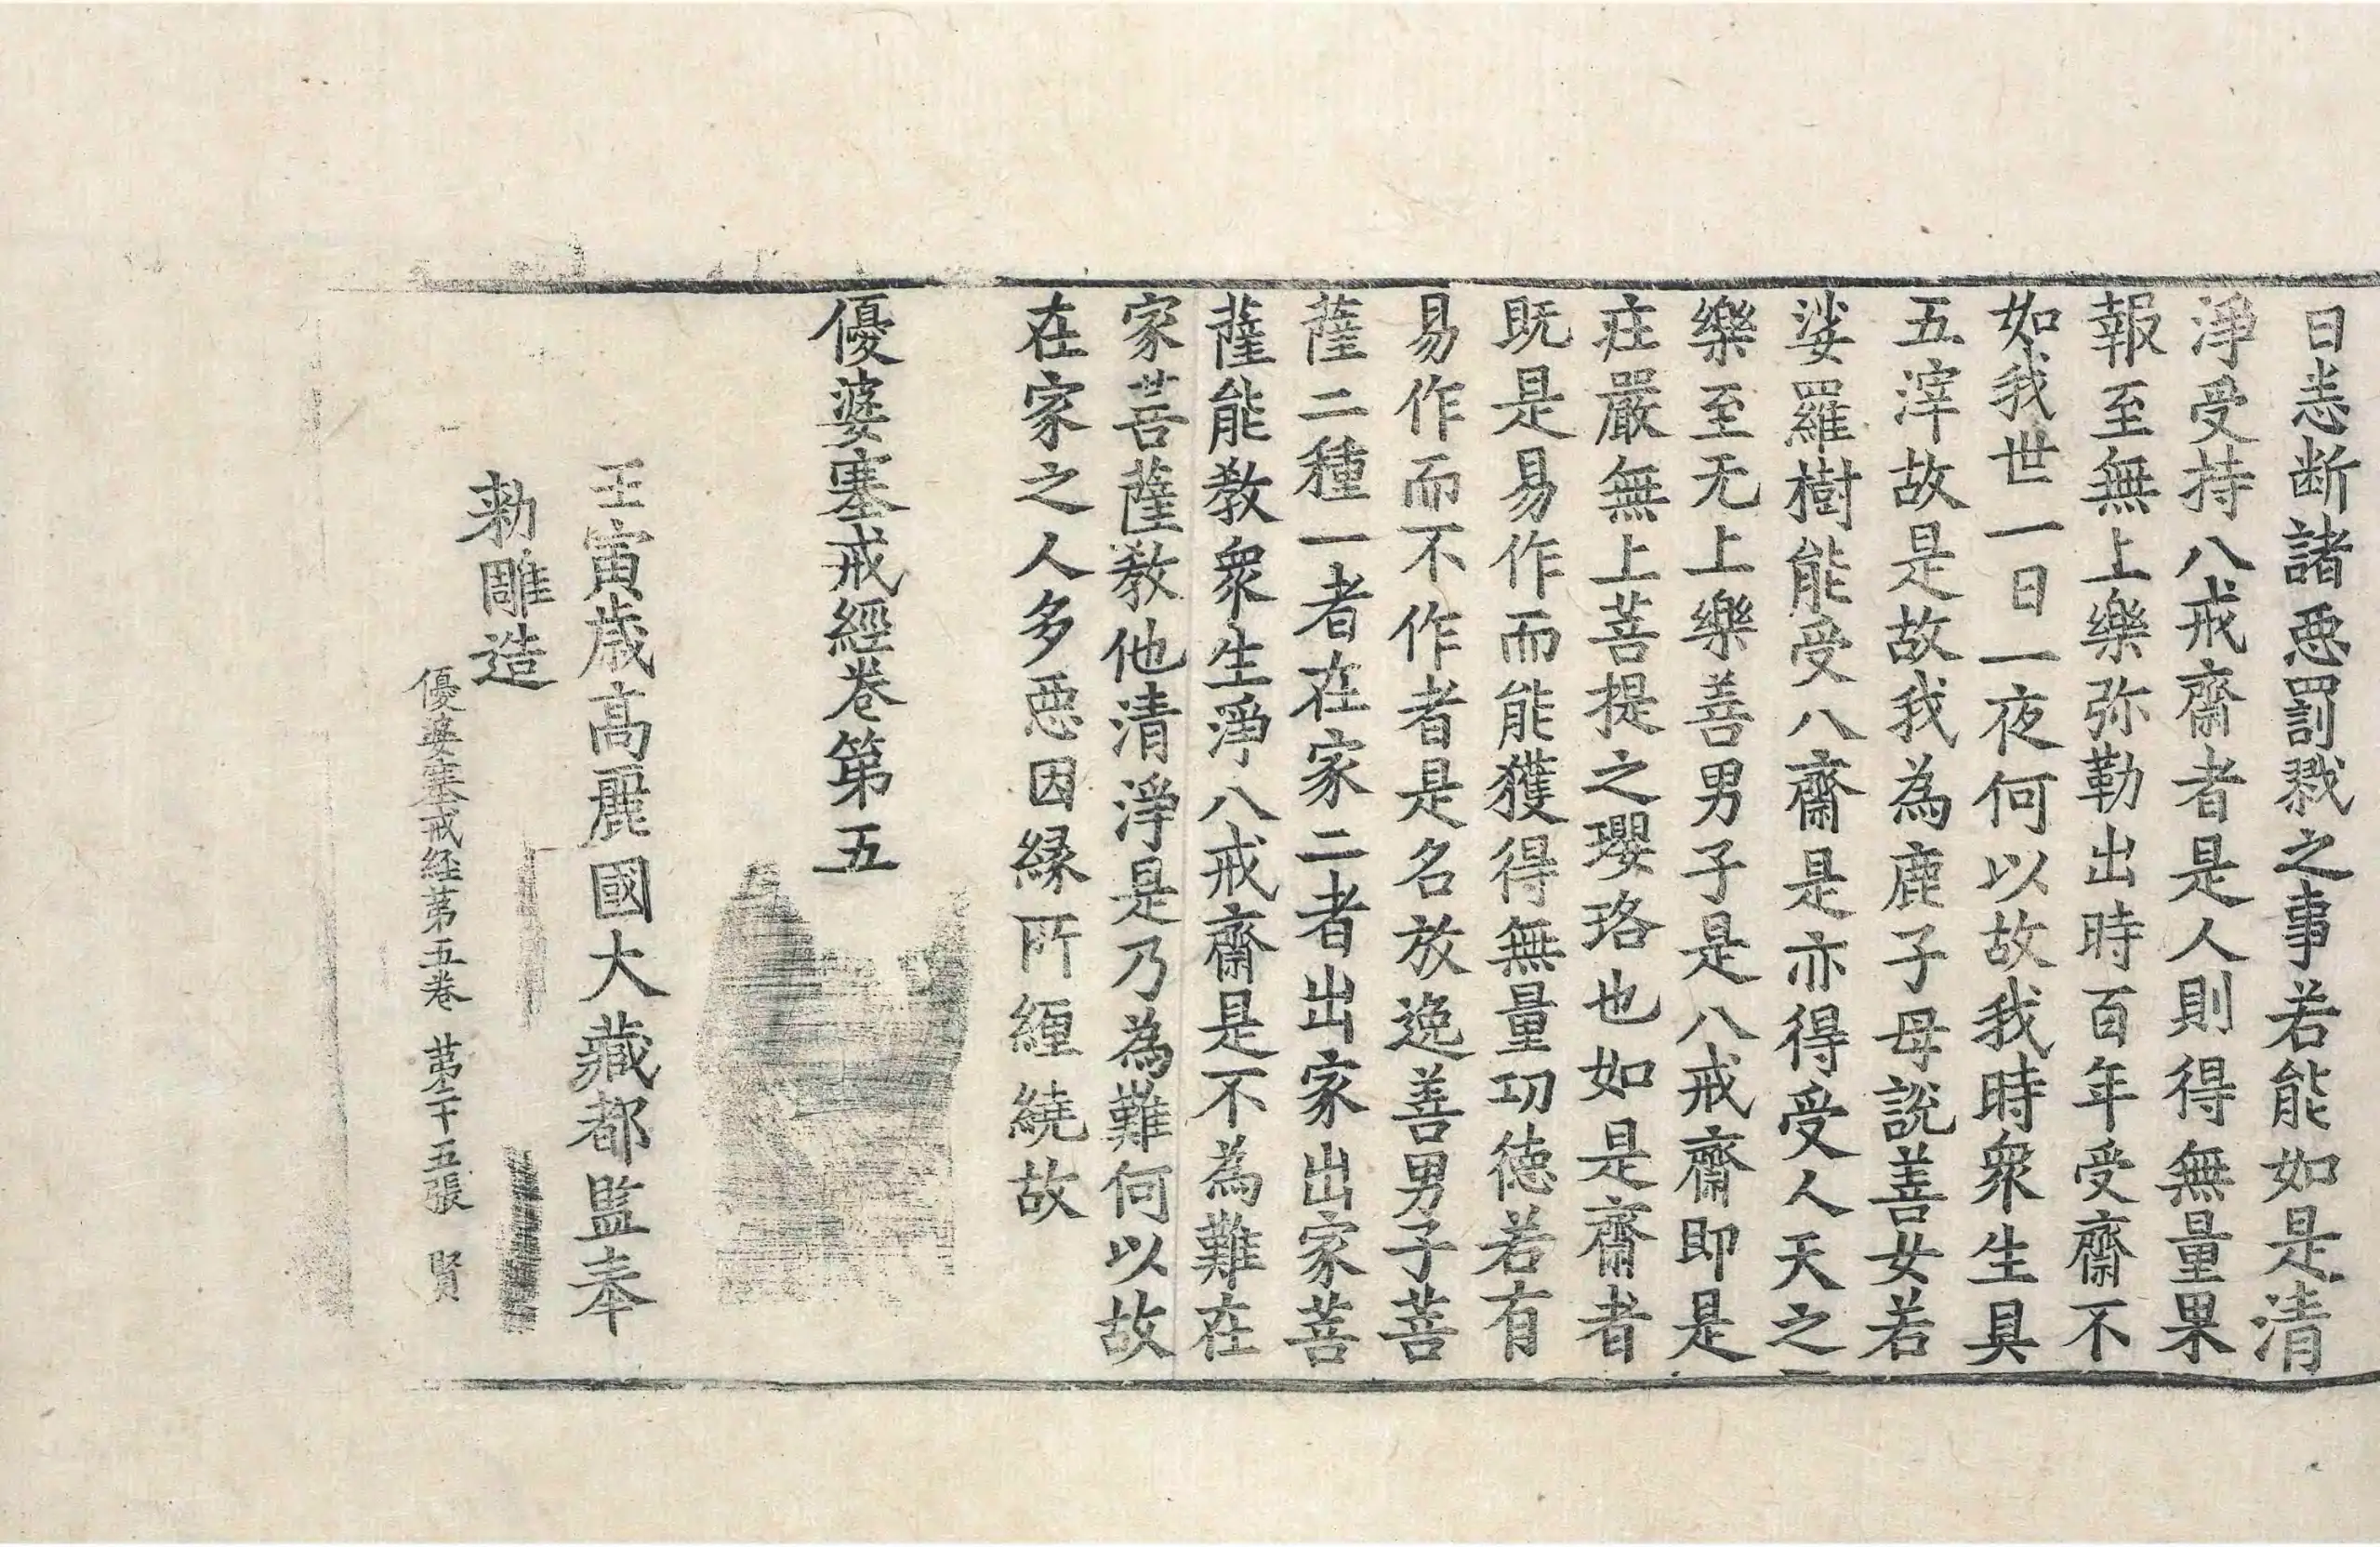 日悉断諸惡罰戮之事若能如是清
淨受持八戒齋者是人則得無量果
報至無上樂弥勒出時百年受齋不
如我世一日一夜何以故我時衆生具
五滓故是故我為鹿子母說善女若
娑羅樹能受八齋是亦得受人天之
樂至无上樂善男子是八戒齋即是
莊嚴無上菩提之瓔珞也如是齋者
既是易作而能獲得無量功德若有
易作而不作者是名放逸善男子菩
薩二種一者在家二者出家出家菩
薩能教衆生淨八戒齋是不為難在
家菩薩教他清淨是乃為難何以故
在家之人多惡因緣所纏繞故
優婆塞戒經卷第五
壬寅歲高麗國大藏都監奉
勑雕造
優婆塞戒経苐五卷 苐二十五張 賢